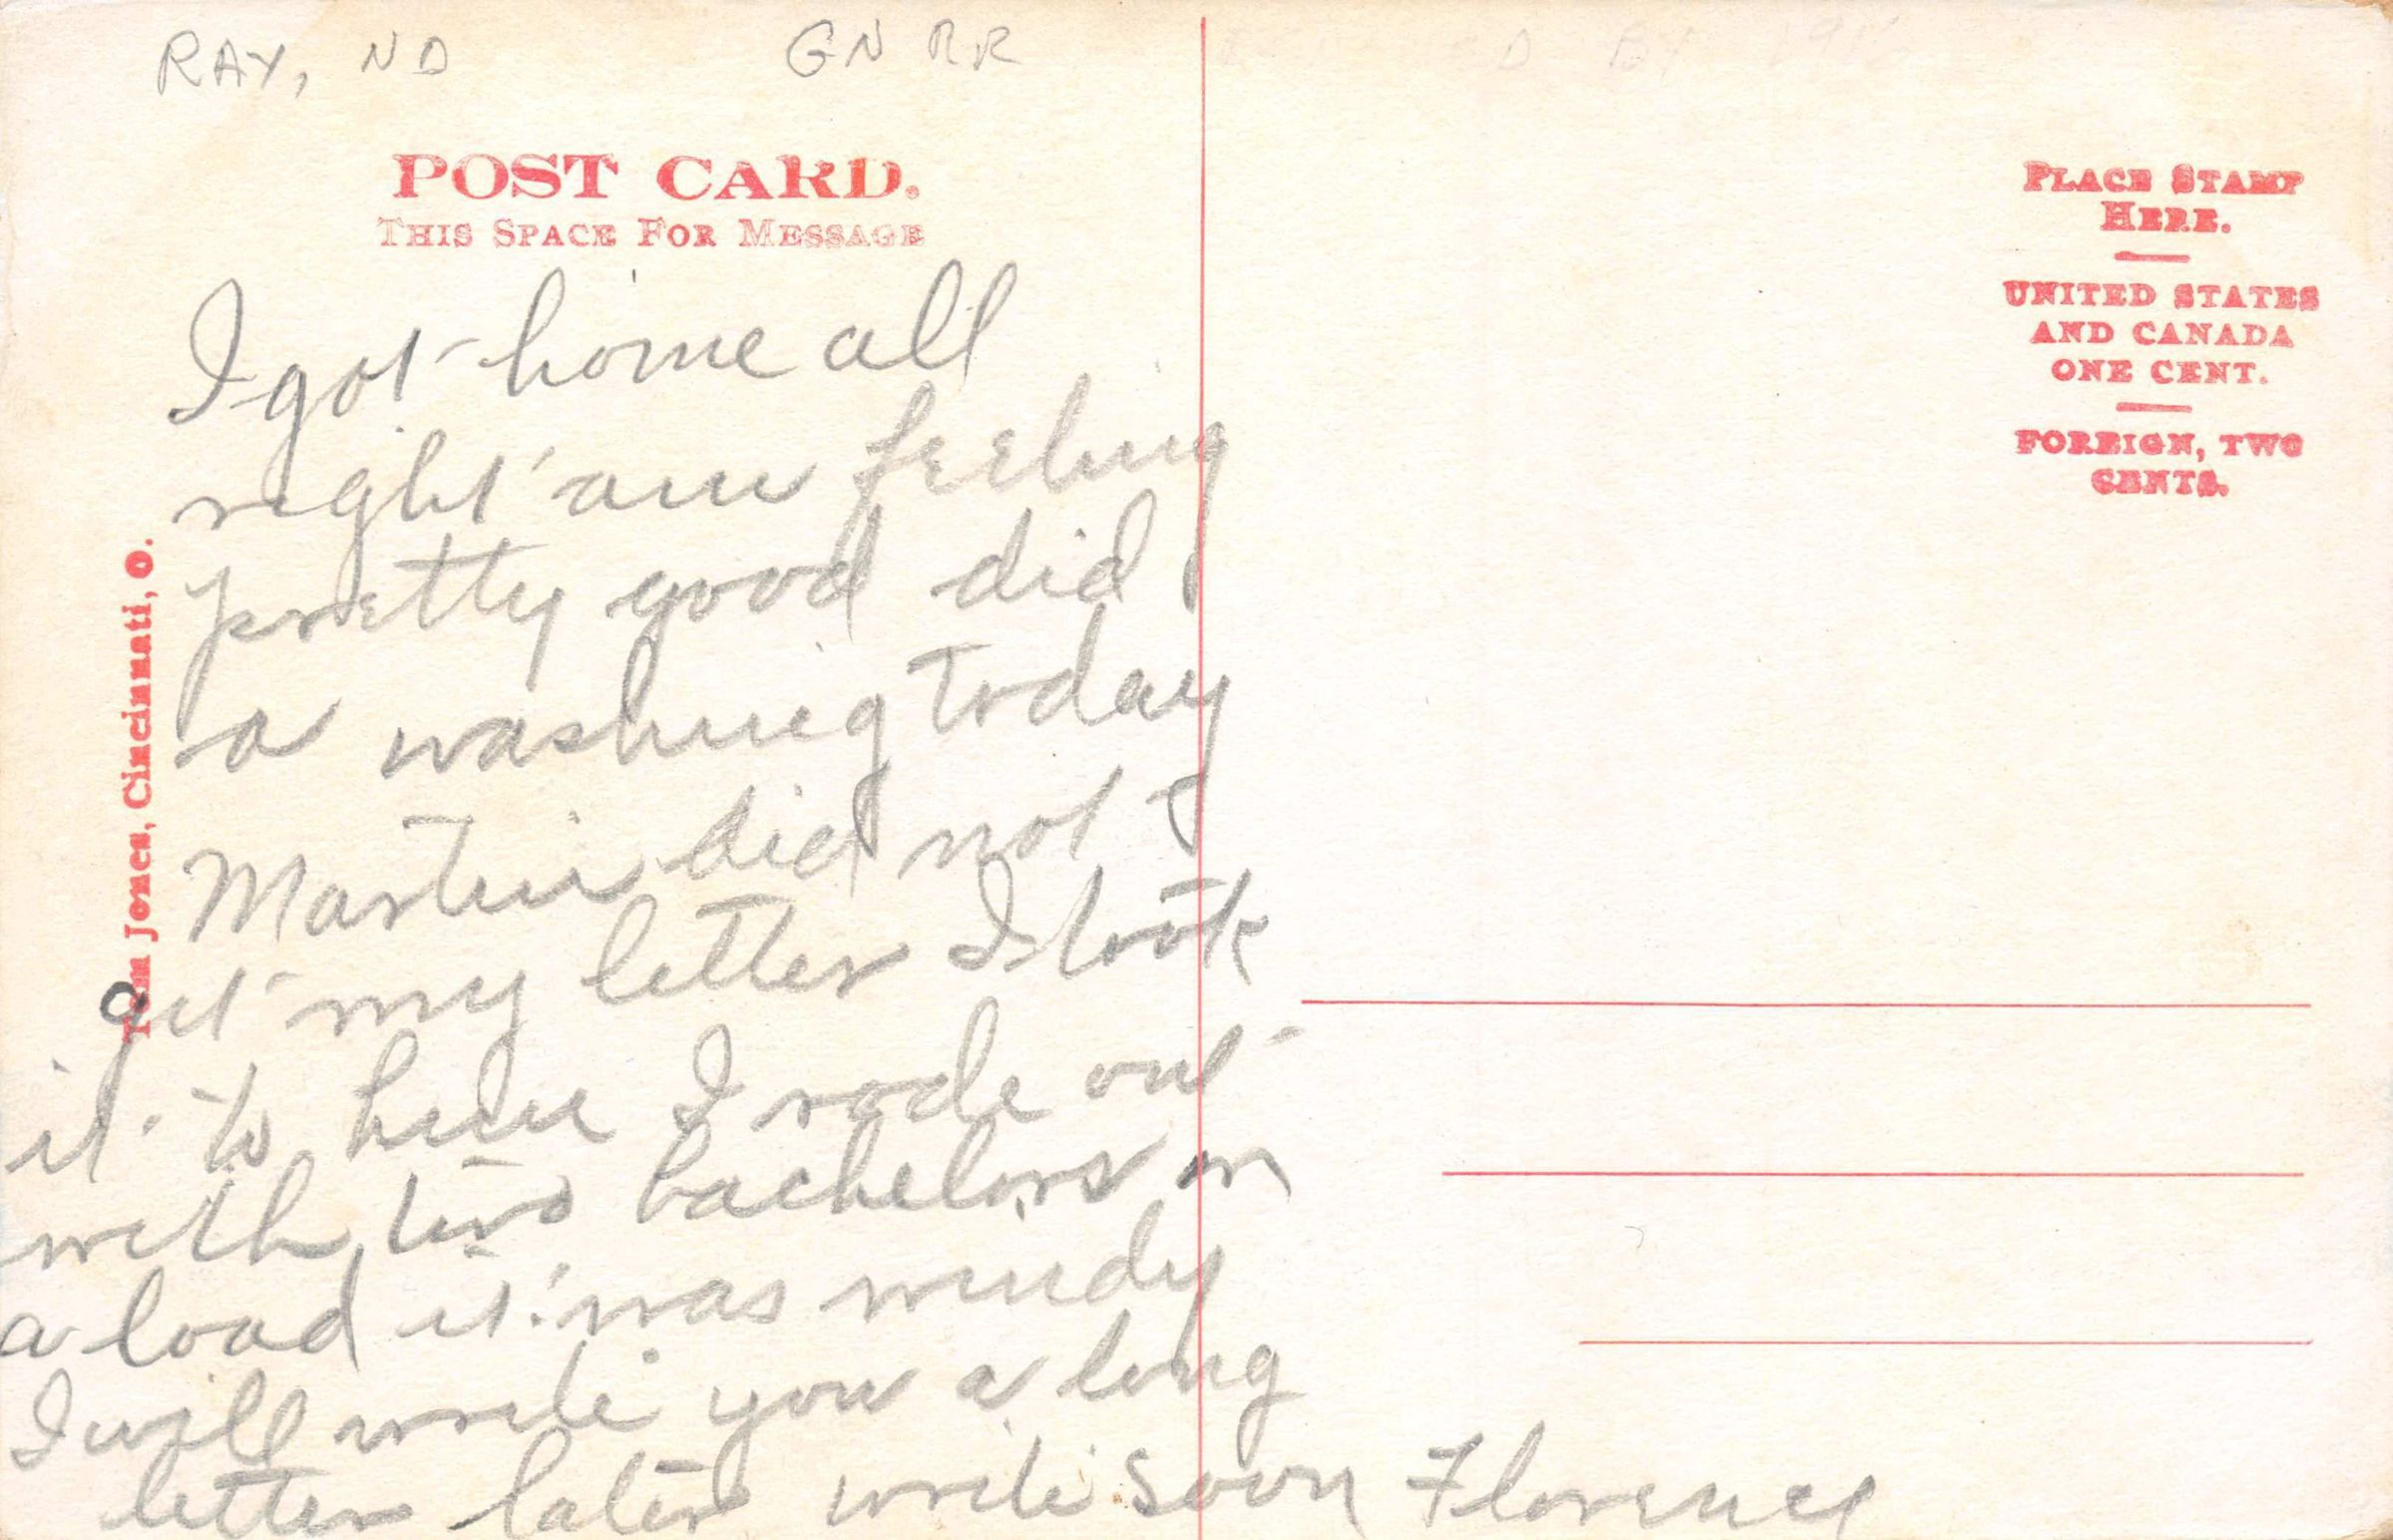 RAY, ND GN RR
D BY
POST CARD.
THIS SPACE FOR MESSAGE
PLACE STAMP
HERE.
UNITED STATES
AND CANADA
ONE CENT.
FOREIGN, TWO
CENTS.
Tom Jones, Cincinnati, O.
I got home all
right am feeling
pretty good did
a washing today
Martin did not
get my letter I took
it to him I rode out
with two bachelors on
a load it was windy
I will write you a long
letter later write soon Florence